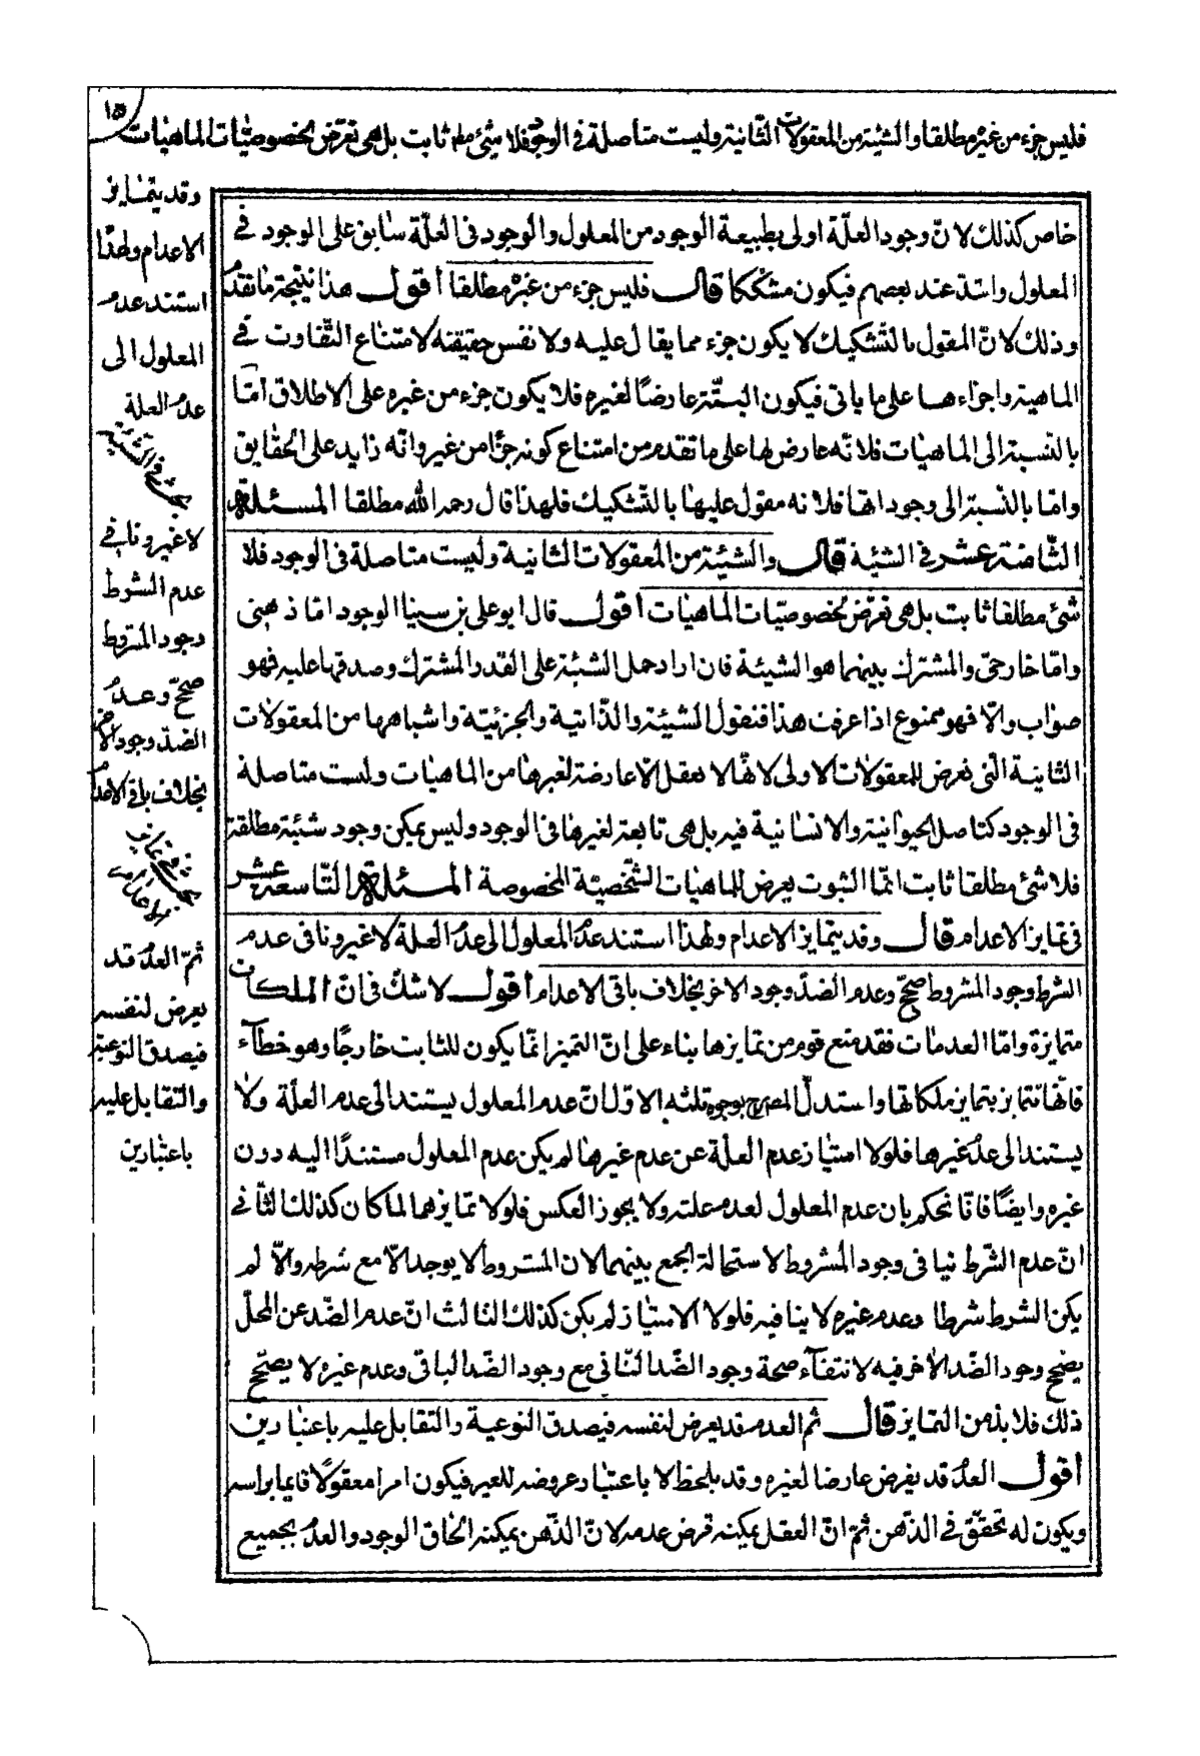 ١٥
فليس جزء من غيره مطلقا والشيئية من المعقولات الثانية وليست متاصلة فى الوجود فلا شئ مطلقا ثابت بل هى تعرض لخصوصيات الماهيات
وقد يتمايز
الاعدام ولهذا
استند عدم
المعلول الى
عدم العلة
لا غير ونافى
عدم الشرط
وجود المشروط
صحح وعدم
الضد وجود الآخر
بخلاف باقى الاعدام
ثم العدم قد
يعرض لنفسه
فيصدق النوعية
والتقابل عليه
باعتبارين
خاص كذلك لانّ وجود العلّة اولى بطبيعة الوجود من المعلول والوجود فى العلّة سابق على الوجود فى
المعلول واشدّ عند بعضهم فيكون مشككا قال فليس جزء من غيره مطلقا اقول هذا نتيجة ما تقدم
وذلك لانّ المقول بالتشكيك لا يكون جزء مما يقال عليه ولا نفس حقيقته لامتناع التفاوت فى
الماهية واجزاءها على ما ياتى فيكون البتّة عارضًا لغيره فلا يكون جزء من غيره على الاطلاق امّا
بالنسبة الى الماهيات فلانّه عارض لها على ما تقدم من امتناع كونه جزًا من غير وانّه زايد على الحقايق
وامّا بالنسبة الى وجوداتها فلانه مقول عليها بالتشكيك فلهذا قال رحمه الله مطلقا المسئلة
الثامنة عشر فى الشيئة قال والشيئية من المعقولات الثانية وليست متاصلة فى الوجود فلا
شئ مطلقا ثابت بل هى تعرض لخصوصيّات الماهيات اقول قال ابو على بن سينا الوجود امّا ذهنى
وامّا خارجىّ والمشترك بينهما هو الشيئية فان اراد حمل الشيئة على القدر المشترك وصدقها عليه فهو
صواب والّا فهو ممنوع اذا عرفت هذا فنقول الشيئية والذّاتية والجزئيّة واشباهها من المعقولات
الثانية الّتى تعرض للمعقولات الاولى لانّها لا تعقل الّا عارضة لغيرها من الماهيات وليست متاصلة
فى الوجود كتاصل الحيوانية والانسانية فيه بل هى تابعة لغيرها فى الوجود وليس يمكن وجود شيئية مطلقة
فلا شئ مطلقا ثابت انّما الثبوت يعرض للماهيات الشّخصيّة المخصوصة المسئلة التّاسعة عشر
فى تمايز الاعدام قال وقد يتمايز الاعدام ولهذا استند عدم المعلول الى عدم العلة لا غير ونافى عدم
الشرط وجود المشروط صحّح وعدم الضدّ وجود الآخر بخلاف باقى الاعدام اقول لا شكّ فى انّ الملكات
متمايزة وامّا العدمات فقد منع قوم من تمايزها بناء على انّ التميز انّما يكون للثابت خارجًا وهو خطآء
فانّها تتمايز بتمايز ملكاتها واستدلّ المص بوجوه ثلثه الاوّل انّ عدم المعلول يستند الى عدم العلّة ولا
يستند الى عدم غيرها فلولا امتياز عدم العلّة عن عدم غيرها لم يكن عدم المعلول مستندًا اليه دون
غيره وايضًا فانّا نحكم بان عدم المعلول لعدم علته ولا يجوز العكس فلولا تمايزهما لما كان كذلك الثّانى
انّ عدم الشّرط ينافى وجود المشروط لاستحالة الجمع بينهما لان المشروط لا يوجد الّا مع شرطه والّا لم
يكن الشرط شرطا وعدم غيره لا ينافيه فلولا الامتياز لم يكن كذلك الثالث انّ عدم الضّد عن المحلّ
يصحح وجود الضّد الآخر فيه لانتفآء صحة وجود الضّد الثّانى مع وجود الضّد الباقى وعدم غيره لا يصحّح
ذلك فلا بدّ من التمايز قال ثم العدم قد يعرض لنفسه فيصدق النوعية والتقابل عليه باعتبارين
اقول العدم قد يفرض عارضا لغيره وقد يلحظ لا باعتبار عروضه للغير فيكون امرا معقولًا قايما براسه
ويكون له تحقّق فى الذّهن ثمّ انّ العقل يمكنه فرض عدمه لانّ الذّهن يمكنه الحاق الوجود والعدم بجميع